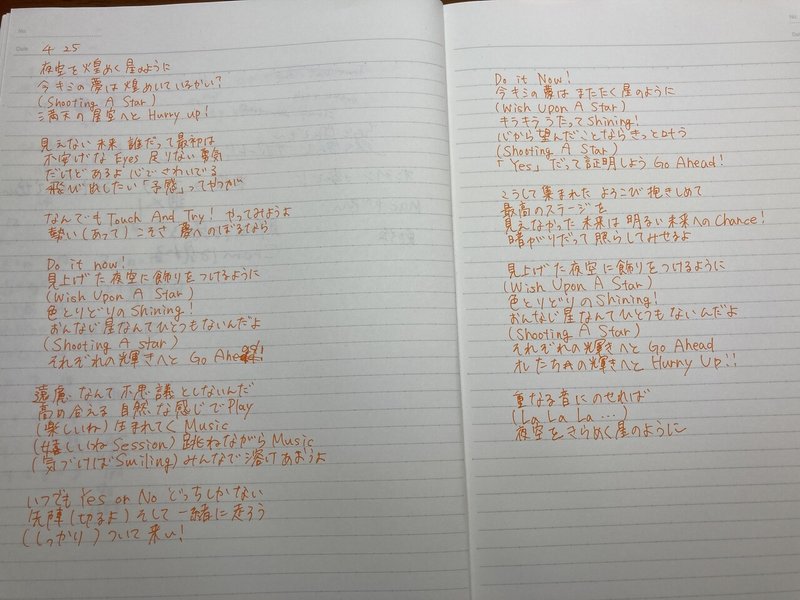 No.
Date
4 25
夜空を煌めく星のように
今キミの夢は煌めいているかい?
(Shooting A Star)
満天の星空へと Hurry up!
見えない未来 誰だって最初は
不安げな Eyes 足りない勇気
だけどあるよ 心でさわいでる
飛び出したい「予感」ってやつが
なんでも Touch And Try! やってみようよ
勢い(あって)こそさ 夢へのぼるなら
Do it now!
見上げた夜空に飾りをつけるように
(Wish Upon A Star)
色とりどりのShining!
おんなじ星なんてひとつもないんだよ
(Shooting A star)
それぞれの輝きへと Go
遠慮なんて不思議としないんだ
高め合える 自然な感じでPlay
(楽しいね) 生まれてく Music
(嬉しいね Session) 跳ねながら Music
(気づけばSmiling) みんなで溶けあおうよ
いつでも Yes or No どっちしかない
先陣(切るよ) そして 一緒に走ろう
(しっかり) ついて来い!
Do it Now!
今キミの夢は またたく星のように
(Wish Upon A Star)
キラキラうたってShining!
心から望んだことならきっと叶う
(Shooting A Star)
「Yes」だって証明しよう Go Ahead!
こうして集まれた よろこび抱きしめて
最高のステージを
見えなかった未来は 明るい未来へのChance!
暗がりだって照らしてみせるよ
見上げた夜空に飾りをつけるように
(Wish Upon A Star)
色とりどりのShining!
おんなじ星なんてひとつもないんだよ
(Shooting A Star)
それぞれの輝きへと Go Ahead
オレたちの輝きへと Hurry Up!!
重なる音にのせれば
(La La La ...)
夜空をきらめく星のように